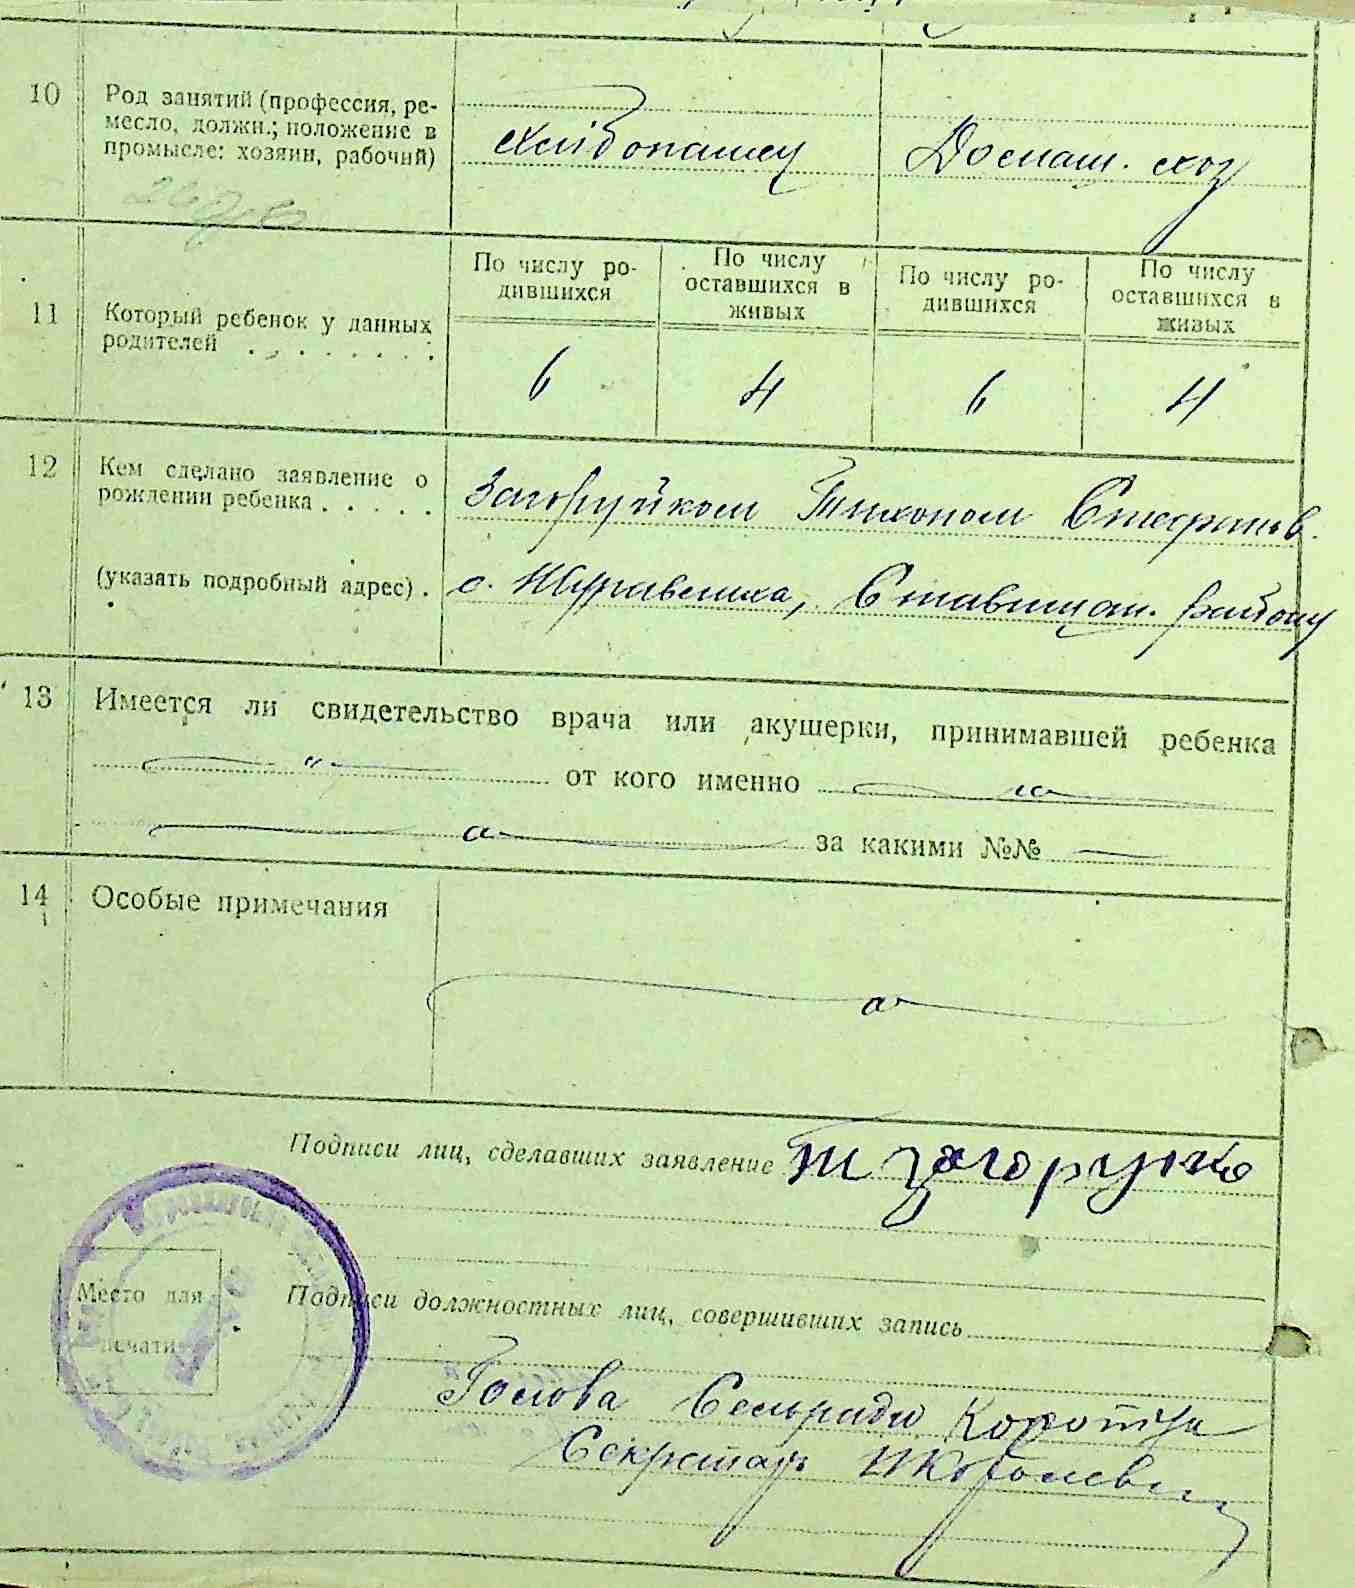 10
Род занятий (профессия, ре-
месло, должн.; положение в
промысле: хозяин, рабочий)
хлібопашец
Домаш. хоз
11
Который ребенок у данных
родителей . . . . . . . .
По числу ро-
дившихся
По числу
оставшихся в
живых
По числу ро-
дившихся
По числу
оставшихся в
живых
6 4 6 4
12
Кем сделано заявление о
рождении ребенка . . . . .
Загоруйком Тихоном Стефанов.
(указать подробный адрес) .
с. Журавлиха, Ставищан. району
13
Имеется ли свидетельство врача или акушерки, принимавшей ребенка
— " — от кого именно — " —
— " — за какими №№ —
14
Особые примечания
— " —
Подписи лиц, сделавших заявление Т Загоруйко
Место для
печати
Подписи должностных лиц, совершивших запись
Голова Сельради
Секретарь